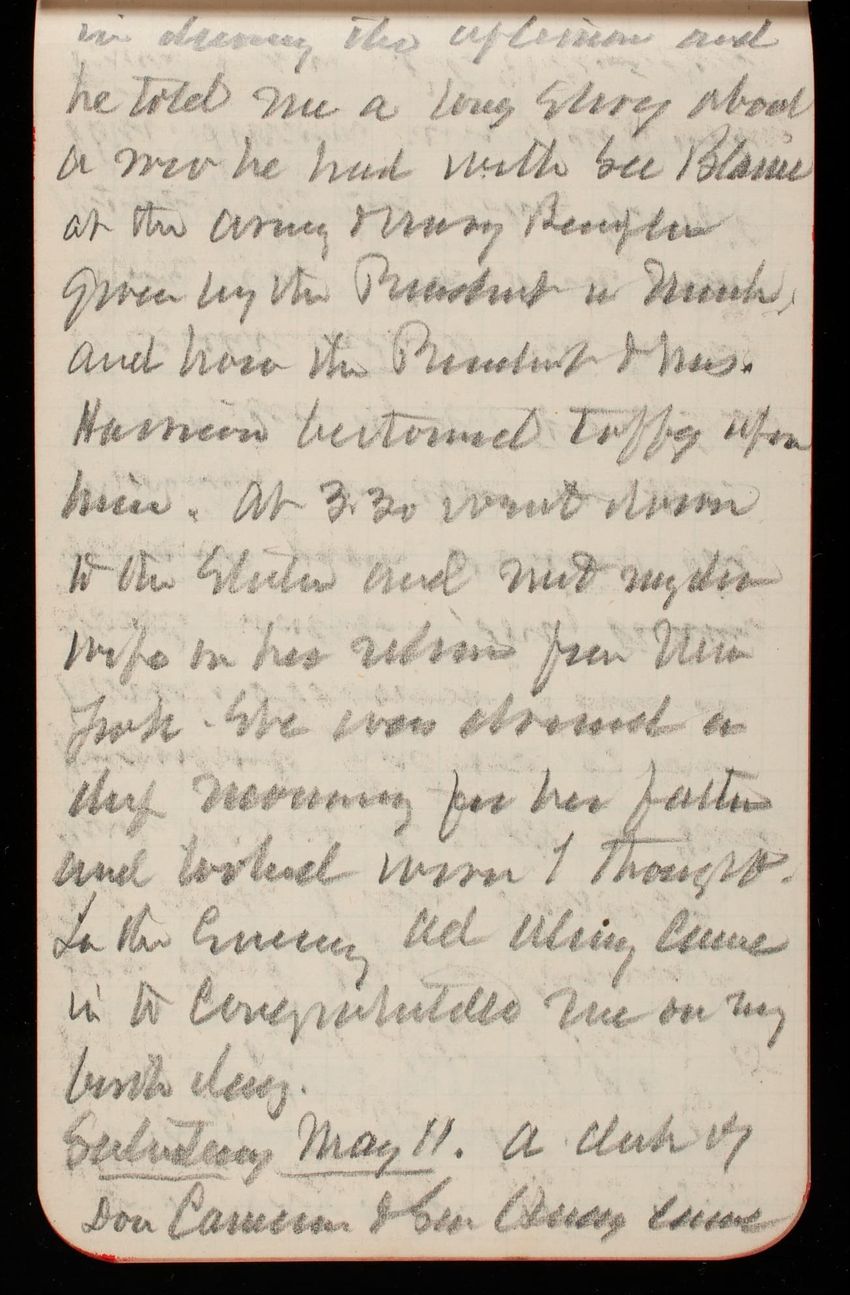 in during the afternoon and
he told me a long story about
a row he had with Sec Blaine
at the army & Navy Reception
given by the President in March,
and how the President & Mrs.
Harrison bestowed taffy upon
him. At 3.30 went down
to the Station and met my dear
wife on her return from New
York. She was dressed in
deep mourning for her father
and looked worn I thought.
In the Evening Ad came
in to Congratulate me on my
birth day.
Saturday May 11. A of
Don Cameron & Gen came